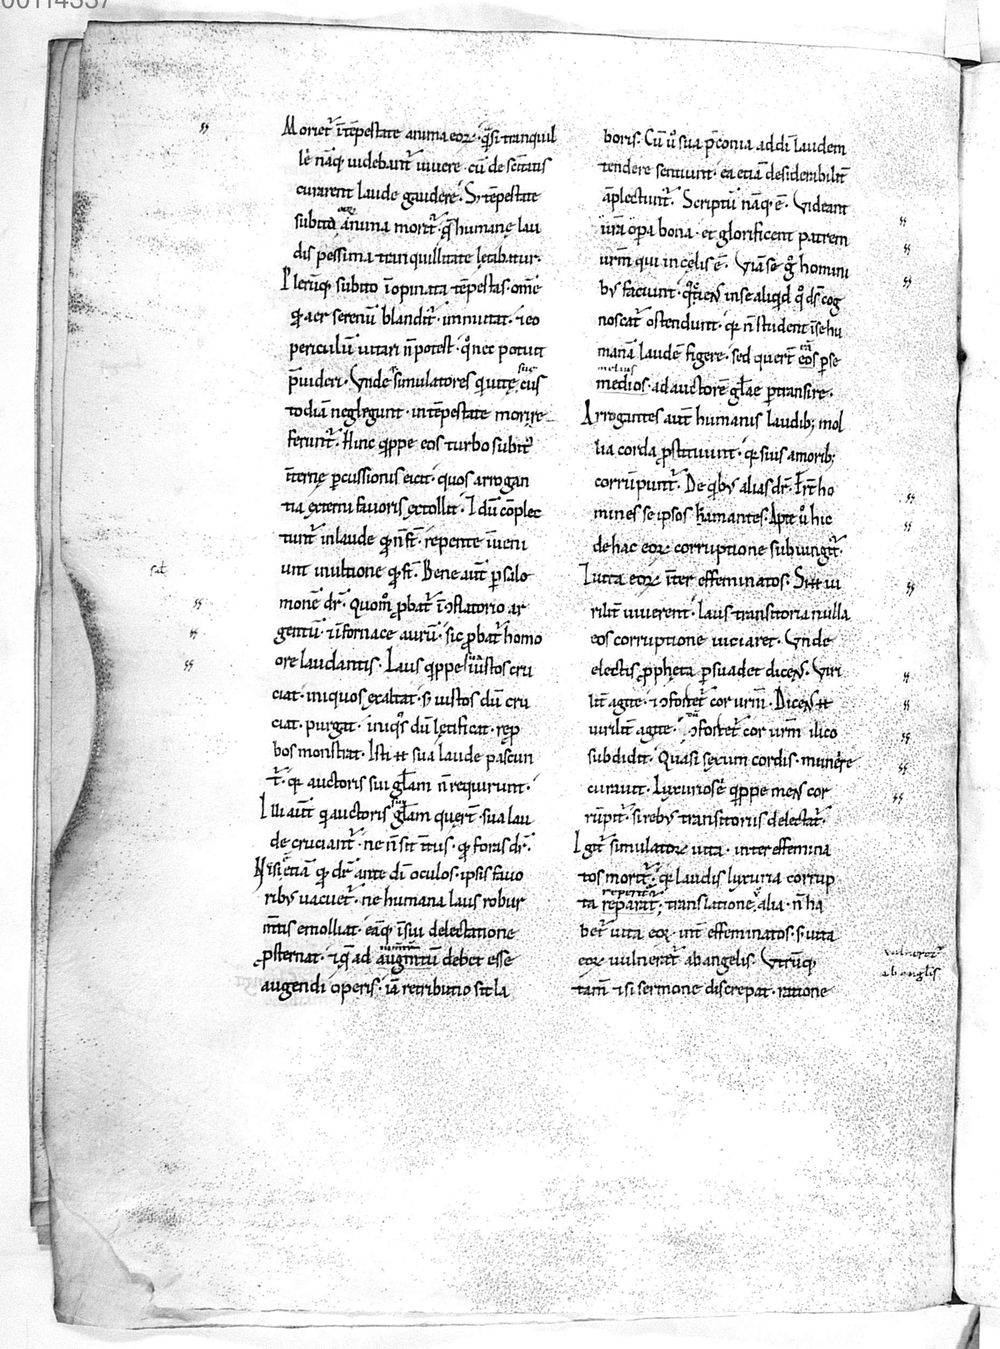 00114337
Moriet᷑ ī tēpestate anima eoꝝ · q̄si tranquil
le nāq; videbant᷑ vivere · cū de sc̄itatis
curarent laude gaudere · S; tēpestate
subita anima morit᷑ · q̄ humanę lau
dis pessima tranquillitate lętabatur ·
Plerūq; subito īopinata tēpestas · om̄e
qđ aer serenū blandit᷑ · inmutat · ⁊ eo
periculū vitari n̄ potest · qđ nec potuit
p̄videri · Vnde simulatores qui vitę suę cus
todiā neglegunt · in tēpestate morire
ferunt᷑ · Hinc q̄ppe eos turbo subit᷑
īternę ꝑcussionis eicit · quos arrogan
tia externi favoris extollit · ⁊ dū cōplec
tunt᷑ in laude qđ n̄ st̄ · repente īveni
unt in ultione qđ st̄ · Bene aut̄ ꝑ salo
monē dr̄ · Quom̄ ꝓbat᷑ ī ↄflatorio ar
gentū · ⁊ ī fornace aurū · sic ꝓbat᷑ homo
ore laudantis · Laus q̄ppe iustos cru
ciat · iniquos exaltat · S; iustos dū cru
ciat · purgat · iniq̊s dū lętificat · rep
bos monstrat · Isti ⁊̄ sua laude pascun
t᷑ · qđ auctoris sui gl̄am n̄ requirunt ·
Illi aut̄ q̄ auctoris sui gl̄am quer̄t · sua lau
de cruciant᷑ · ne n̄ sit īt᷑us · qđ foris dr̄ ·
Nisi etiā qđ dr̄ · ante dī oculos · ipsis favo
rib; vacuet᷑ · ne humana laus robur
m̄tis emolliat · eāq; ī sui delectatione
ꝓsternat · ⁊ q̄ ad augm̄tū debet esse
augendi operis · iā retributio sit la
boris · Cū ū sua p̄conia ad dī laudem
tendere sentiunt · ea etiā desiderabilit᷑
āplectunt᷑ · Scriptū nāq; ē · Videant
ūra opa bona · et glorificent patrem
ur̄m qui in cęlis ē · Viā se gͦ homini
b; faciunt · qͦtiens in se aliqđ qđ ds̄ cog
noscat᷑ ostendunt · qđ n̄ student ī se hu
manā laudē figere · sed quer̄t eos ꝑ se
medios · ad auctorē gl̄ae ꝑtransire ·
Arrogantes aut̄ humanis laudib; mol
lia corda ꝓstituunt · qđ suis amorib;
corrūpunt᷑ · De qͥb; alias dr̄ · Er̄t ho
mines se ipsos amantes · Apte ū hic
de hac eoꝝ corruptione subiungit᷑ ·
⁊ vita eoꝝ īter effeminatos · Si ⁊̄ vi
rilit᷑ viverent · laus transitoria nulla
eos corruptione viciaret · Vnde
electis ꝓpheta ꝑsuadet dicens · Viri
lit᷑ agite · ⁊ ↄfortet᷑ cor vr̄m · Dicens ⁊̄
virilit᷑ agite · ↄfortet᷑ cor vr̄m · ilico
subdidit · Quasi secum cordis · munere
curavit · Luxuriose q̄ppe mens cor
rūpit᷑ · si reb; transitoriis delectat᷑ ·
Igit᷑ simulatoꝝ vita · inter effemina
tos morit᷑ · qđ laudis luxuria corrup
ta reparat᷑ · translatione alia · n̄ ha
bet᷑ vita eoꝝ · int̄ effeminatos · s; vita
eoꝝ vulnerat᷑ ab angelis · Vtrūq;
tam̄ ⁊ si sermone discrepat · ratione
vulnerat᷑
ab anglis